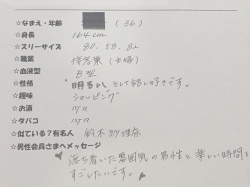 ☆なまえ・年齢 (36)
☆身長 164cm
☆スリーサイズ 80.58.82
☆職業
☆血液型 B型
☆性格 明るく
☆趣味 ショッピング
☆お酒
☆タバコ
☆似ている?有名人 鈴木
☆男性会員さまへメッセージ
落ち着いた雰囲気の男性と楽しい時間を
すごしたいです。